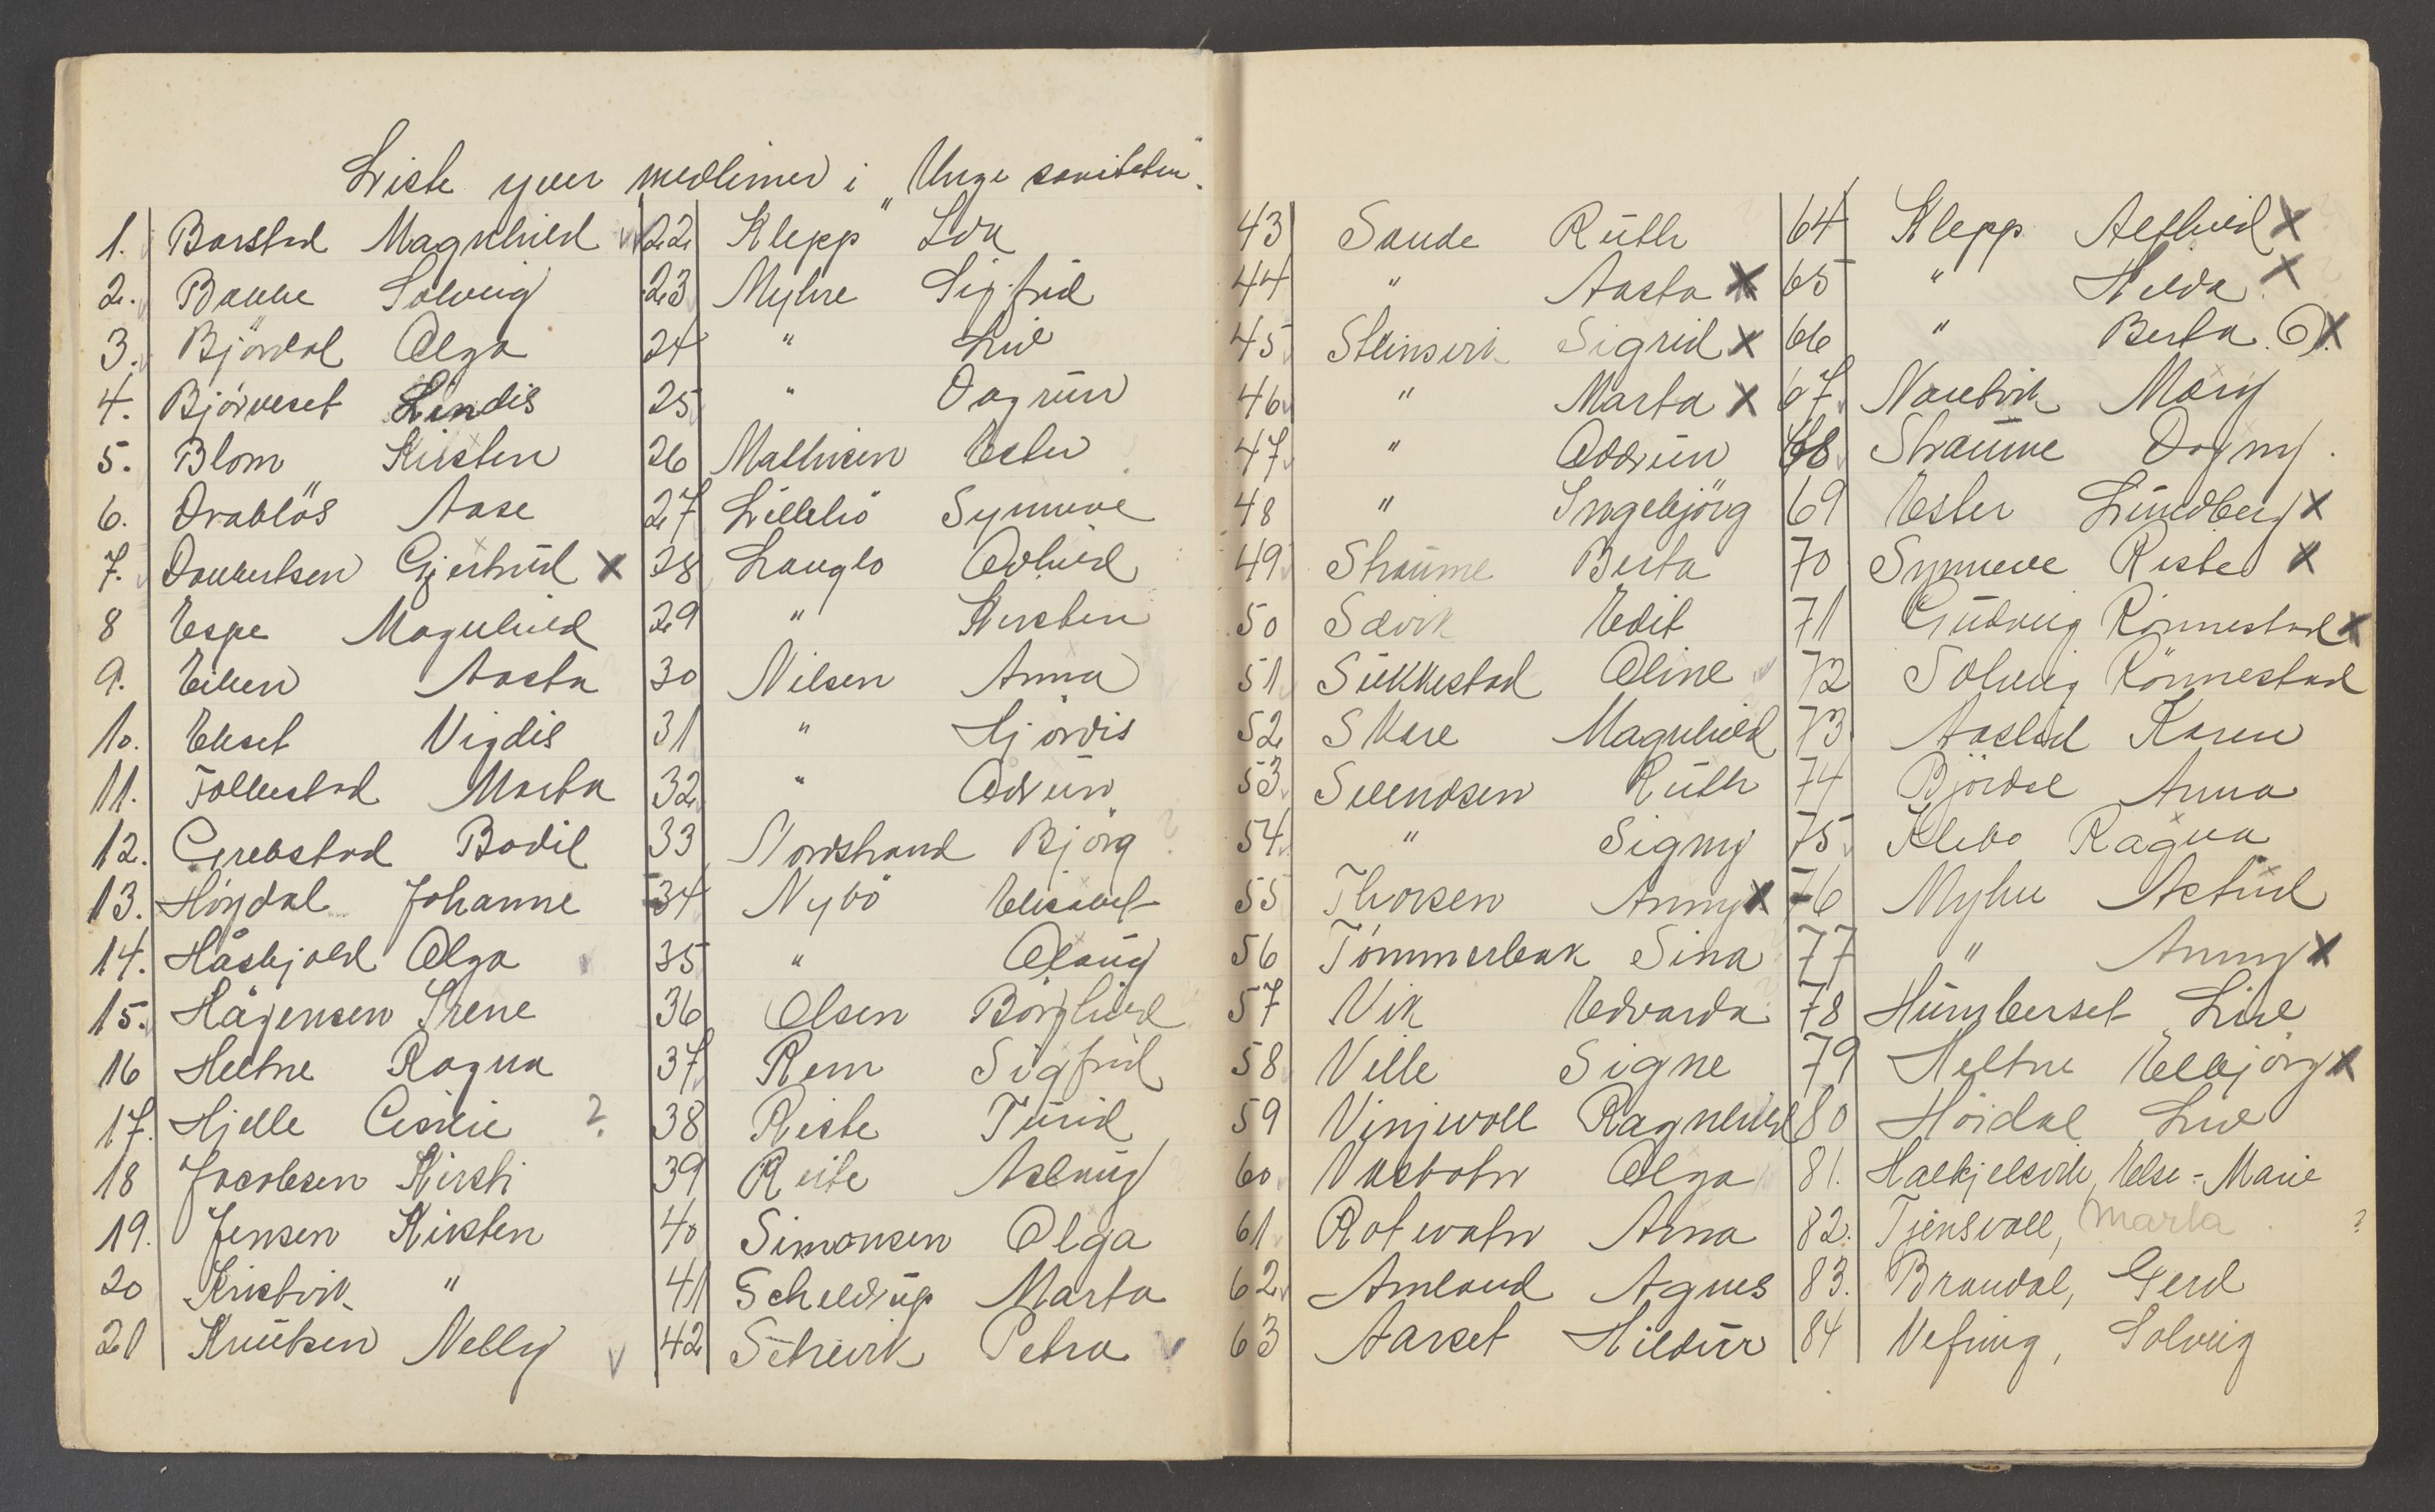 Liste yver medlemer i "Unge saniteten".
1. Barstad Magnhild
2. Bakke Solveig
3. Bjørdal Olga
4. Bjørneset Lindis
5. Blom Kirsten
6. Drabløs Aase
7. Gjertrud X
8 Espe Magnhild
9. Eiken Aasta
10. Ekset Vigdis
11. Follestad Marta
12. Grebstad Bodil
13. Høydal Johanne
14. Håskjold Olga
15. Hågensen Irene
16 Heltne Ragna
17. Hjelle Cecilie ?
18 Jacobsen Kirsti
19. Jensen Kirsten
20 Kristvik "
21 Knutsen Nelly
22 Klepp Lda
23 Myhre Sigfrid
24 " Liv
25 " Dagrun
26 Mathisen Ester
27 Lillebø Synnøve
28 Langlo Odhild
29 " Kirsten
30 Nilsen Anna
31 " Hjørdis
32 " Odrun
33 Nordstrand Bjørg
34 Nybø Elisabet
35 " Olaug
36 Olsen Borghild
37 Rem Sigfrid
38 Riste Turid
39 Reite Aslaug
40 Simonsen Olga
41 Scheldrup Marta
42 Petra
43 Sande Ruth
44 " Aasta X
45 Steinsvik Sigrid X
46 " Marta X
47 " Oddrun
48 " Ingebjørg
49 Straume Berta
50 Sævik Edit
51 Sukkestad Oline
52 Skare Magnhild
53 Svendsen Ruth
54 " Signy
55 Thorsen Anny X
56 Tømmerbak Sina
57 Vik Edvarda
58 Velle Signe
59 Vinjevoll Ragnhild
60 Vasbotn Olga
61 Rotevatn Arna
62 Amland Agnes
63 Aarset Hildur
64 Klepp Alfhild X
65 " Hilda X
66 " Berta O. X
67 Nautvik Mary
68 Straume Dagny.
69 Ester Lundberg X
70 Synnøve Riste X
71 Gudveig Rønnestad X
72 Solveig Rønnestad
73 Aastad Karen
74 Bjørdal Anna
75 Klebo Ragna
76 Myhre Astrid
77 " Anny X
78 Humberset Live
79 Heltne Eldbjørg X
80 Høidal Liv
81. Halkjelsvik, Else-Marie
82. Tjensvoll, Marta. ?
83. Brandal, Gerd
84 Solveig